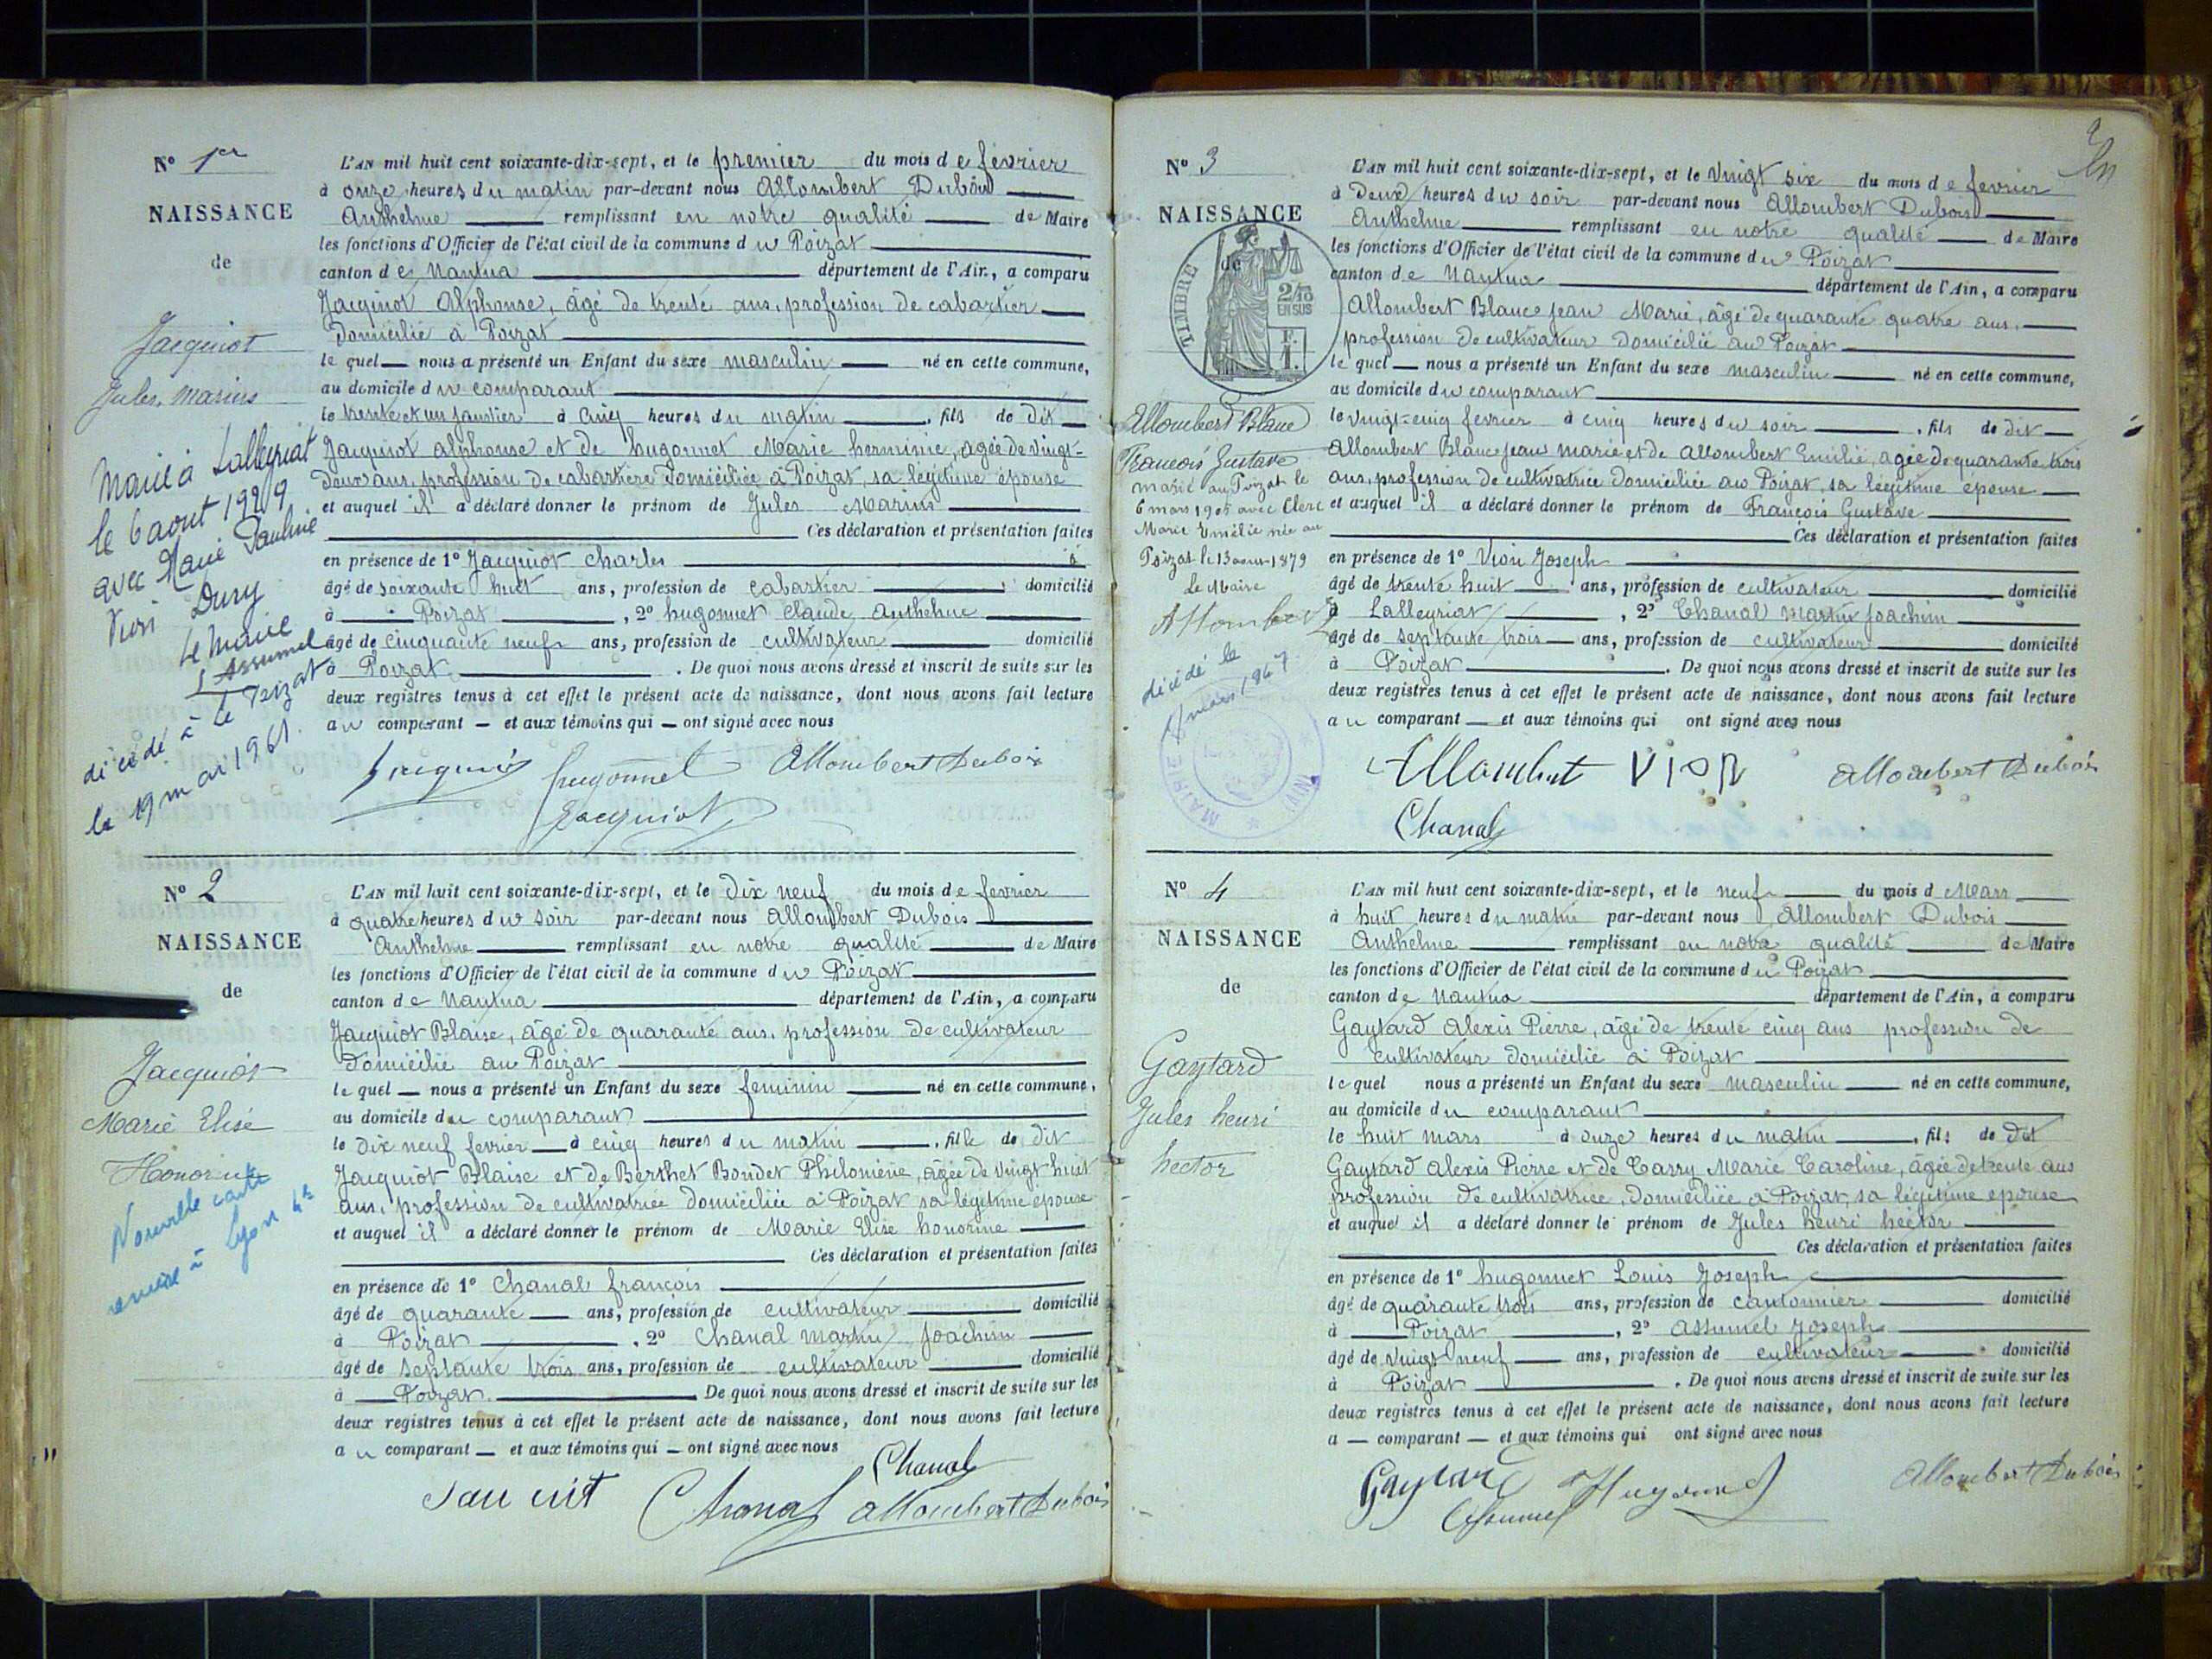 N° 1er
NAISSANCE
de
Jacquiot
Jules Marius
Marié à Lalleyriat
le 6 aout 1929
avec Marie Pauline
Dury
le Maire
Assumel
décédé à Le Poizat
le 19 mai 1961.
L'AN mil huit cent soixante-dix-sept, et le premier du mois de fevrier
à onze heures du matin par-devant nous Allombert Dubois
Anthelme remplissant en notre qualité de Maire
les fonctions d'Officier de l'état civil de la commune du Poizat
canton de Nantua département de l'Ain, a comparu
Jacquiot Alphonse, âgé de trente ans, profession de cabartier
domicilié à Poizat
le quel nous a présenté un Enfant du sexe masculin né en cette commune,
au domicile du comparant
le trente et un janvier à cinq heures du matin, fils de dit
Jacquiot alphonse et de hugonnet Marie herminie, agée de vingt-
deux ans, profession de cabartière domiciliée à Poizat, sa légitime épouse
et auquel il a déclaré donner le prénom de Jules Marius
Ces déclaration et présentation faites
en présence de 1° Jacquiot Charles
âgé de soixante huit ans, profession de cabartier domicilié
à Poizat, 2° hugonnet Claude Anthelme
âgé de cinquante neuf ans, profession de cultivateur domicilié
à Poizat. De quoi nous avons dressé et inscrit de suite sur les
deux registres tenus à cet effet le présent acte de naissance, dont nous avons fait lecture
au comparant et aux témoins qui ont signé avec nous
Jacquiot hugonnet Allombert Dubois
Jacquiot
N° 2
NAISSANCE
de
Jacquiot
Marie Elise
Honorine
Nouvelle carte
à Lyon 4e
L'AN mil huit cent soixante-dix-sept, et le dix neuf du mois de fevrier
à quatre heures du soir par-devant nous allombert Dubois
Anthelme remplissant en notre qualité de Maire
les fonctions d'Officier de l'état civil de la commune du Poizat
canton de Nantua département de l'Ain, a comparu
Jacquiot Blaise, âgé de quarante ans, profession de cultivateur
domicilié au Poizat
le quel nous a présenté un Enfant du sexe feminin né en cette commune,
au domicile du comparant
le dix neuf fevrier à cinq heures du matin, fille de dit
Jacquiot Blaise et de Berthet Bondet Philomène, âgée de vingt huit
ans, profession de cultivatrice domiciliée à Poizat sa légitime épouse
et auquel il a déclaré donner le prénom de Marie Elise honorine
Ces déclaration et présentation faites
en présence de 1° Chanal françois
âgé de quarante ans, profession de cultivateur domicilié
à Poizat, 2° Chanal Martin Joachim
âgé de septante trois ans, profession de cultivateur domicilié
à Poizat. De quoi nous avons dressé et inscrit de suite sur les
deux registres tenus à cet effet le présent acte de naissance, dont nous avons fait lecture
au comparant et aux témoins qui ont signé avec nous
Chanal
Chanal allombert Dubois
N° 3
NAISSANCE
de
TIMBRE
2/10
EN SUS
F.
1.
Allombert Blanc
François Gustave
marié au Poizat le
6 mars 1905 avec Clerc
Marie Emélie née au
Poizat le 13 aout 1879
Le Maire
Allombert
décédé le
mars 1947
MAIRIE
AIN
L'AN mil huit cent soixante-dix-sept, et le vingt six du mois de fevrier
à Deux heures du soir par-devant nous Allombert Dubois
Anthelme remplissant en notre qualité de Maire
les fonctions d'Officier de l'état civil de la commune du Poizat
canton de Nantua département de l'Ain, a comparu
Allombert Blanc Jean Marie, âgé de quarante quatre ans,
profession de cultivateur domicilié au Poizat
le quel nous a présenté un Enfant du sexe masculin né en cette commune,
au domicile du comparant
le vingt-cinq fevrier à cinq heures du soir, fils de dit
Allombert Blanc Jean marie et de Allombert Emilie, agée de quarante trois
ans, profession de cultivatrice domiciliée au Poizat, sa légitime épouse
et auquel il a déclaré donner le prénom de François Gustave
Ces déclaration et présentation faites
en présence de 1° Vion Joseph
âgé de trente huit ans, profession de cultivateur domicilié
à Lalleyriat, 2° Chanal Martin Joachim
âgé de septante trois ans, profession de cultivateur domicilié
à Poizat. De quoi nous avons dressé et inscrit de suite sur les
deux registres tenus à cet effet le présent acte de naissance, dont nous avons fait lecture
au comparant et aux témoins qui ont signé avec nous
Allombert Vion allombert Dubois
Chanal
N° 4
NAISSANCE
de
Gaytard
Jules henri
hector
L'AN mil huit cent soixante-dix-sept, et le neuf du mois d Mars
à huit heures du matin par-devant nous Allombert Dubois
Anthelme remplissant en notre qualité de Maire
les fonctions d'Officier de l'état civil de la commune du Poizat
canton de Nantua département de l'Ain, a comparu
Gaytard Alexis Pierre, âgé de trente cinq ans profession de
cultivateur domicilié à Poizat
le quel nous a présenté un Enfant du sexe masculin né en cette commune,
au domicile du comparant
le huit mars à onze heures du matin, fils de dit
Gaytard Alexis Pierre et de Carry Marie Caroline, âgée de trente ans
profession de cultivatrice, domiciliée à Poizat, sa légitime épouse
et auquel il a déclaré donner le prénom de Jules henri hector
Ces déclaration et présentation faites
en présence de 1° hugonnet Louis Joseph
âgé de quarante trois ans, profession de cantonnier domicilié
à Poizat, 2° Assumel Joseph
âgé de vingt neuf ans, profession de cultivateur domicilié
à Poizat. De quoi nous avons dressé et inscrit de suite sur les
deux registres tenus à cet effet le présent acte de naissance, dont nous avons fait lecture
a comparant et aux témoins qui ont signé avec nous
Gaytard Hugonnet Allombert Dubois
Assumel